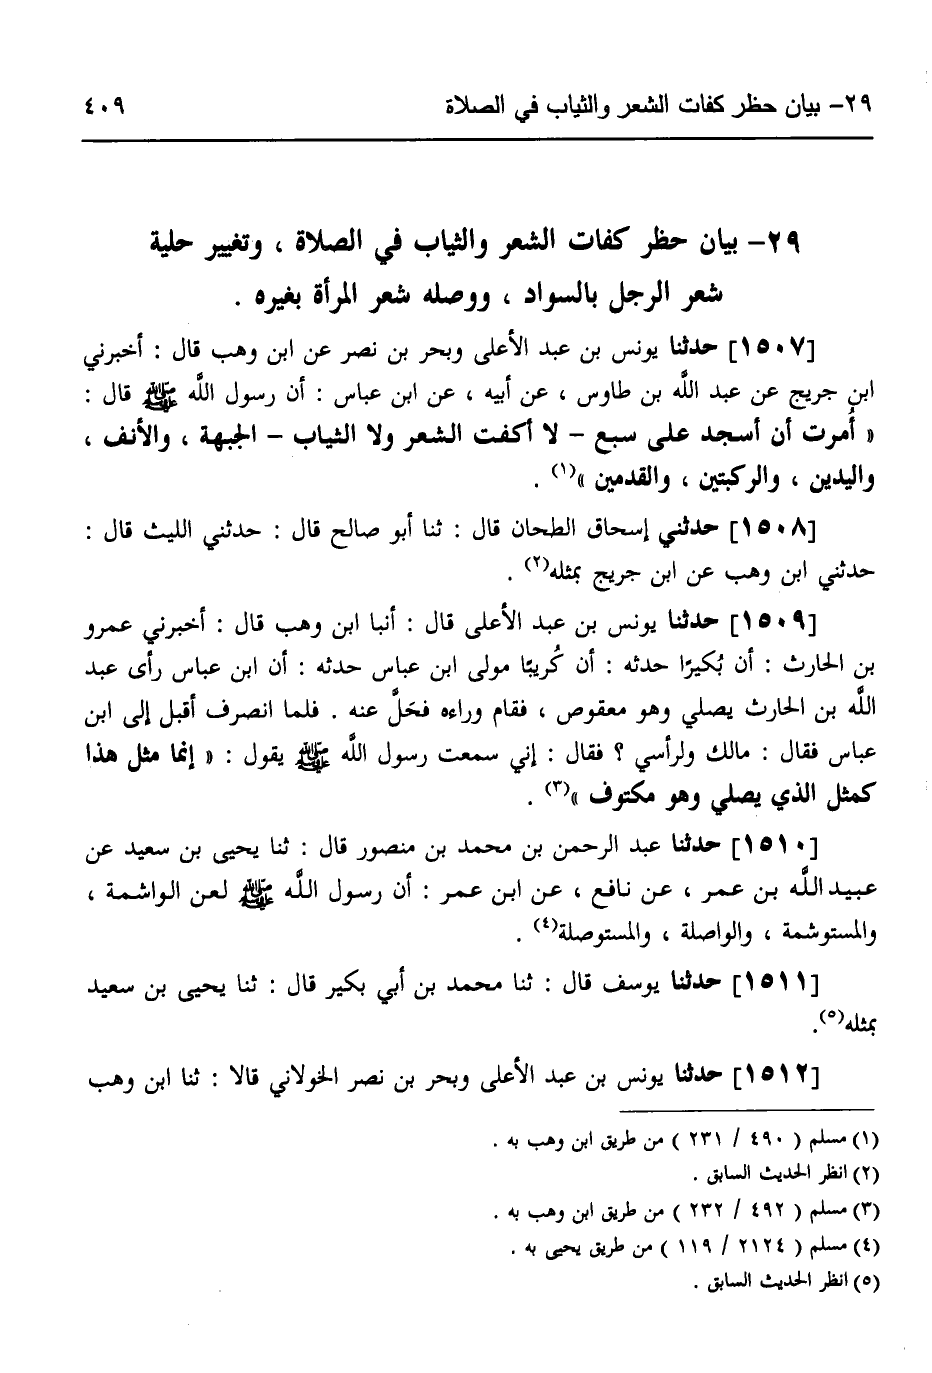 ٢٩- بيان حظر كفات الشعر والثياب في الصلاة ٤٠٩
٢٩- بيان حظر كفات الشعر والثياب في الصلاة ، وتغيير حلية
شعر الرجل بالسواد ، ووصله شعر المرأة بغيره .
[١٥٠٧] حدثنا يونس بن عبد الأعلى وبحر بن نصر عن ابن وهب قال : أخبرني
ابن جريج عن عبد اللَّه بن طاوس ، عن أبيه ، عن ابن عباس : أن رسول اللَّه ﷺ قال :
« أُمرت أن أسجد على سبع – لا أكفت الشعر ولا الثياب – الجبهة ، والأنف ،
واليدين ، والركبتين ، والقدمين »(١) .
[١٥٠٨] حدثني إسحاق الطحان قال : ثنا أبو صالح قال : حدثني الليث قال :
حدثني ابن وهب عن ابن جريج بمثله(٢) .
[١٥٠٩] حدثنا يونس بن عبد الأعلى قال : أنبا ابن وهب قال : أخبرني عمرو
بن الحارث : أن بُكيرًا حدثه : أن كُريبًا مولى ابن عباس حدثه : أن ابن عباس رأى عبد
اللَّه بن الحارث يصلي وهو معقوص ، فقام وراءه فحَلَّ عنه . فلما انصرف أقبل إلى ابن
عباس فقال : مالك ولرأسي ؟ فقال : إني سمعت رسول اللَّه ﷺ يقول : « إنما مثل هذا
كمثل الذي يصلي وهو مكتوف »(٣) .
[١٥١٠] حدثنا عبد الرحمن بن محمد بن منصور قال : ثنا يحيى بن سعيد عن
عبيد اللَّه بن عمر ، عن نافع ، عن ابن عمر : أن رسول اللَّه ﷺ لعن الواشمة ،
والمستوشمة ، والواصلة ، والمستوصلة(٤) .
[١٥١١] حدثنا يوسف قال : ثنا محمد بن أبي بكير قال : ثنا يحيى بن سعيد
بمثله(٥).
[١٥١٢] حدثنا يونس بن عبد الأعلى وبحر بن نصر الخولاني قالا : ثنا ابن وهب
(١) مسلم ( ٤٩٠ / ٢٣١ ) من طريق ابن وهب به .
(٢) انظر الحديث السابق .
(٣) مسلم ( ٤٩٢ / ٢٣٢ ) من طريق ابن وهب به .
(٤) مسلم ( ٢١٢٤ / ١١٩ ) من طريق يحيى به .
(٥) انظر الحديث السابق .